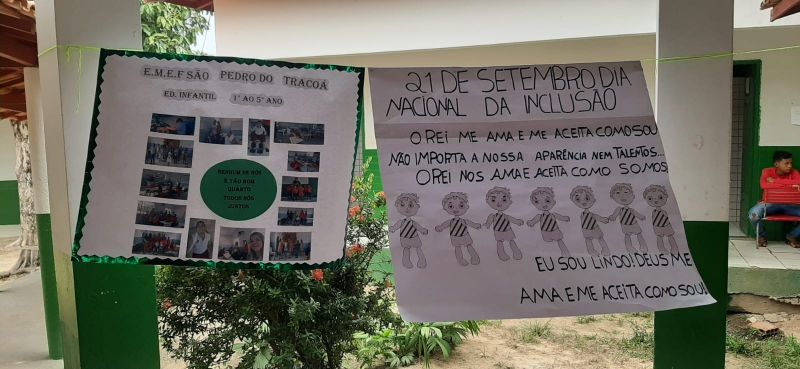 E.M.E.F SÃO PEDRO DO TRACOÁ
ED. INFANTIL 1° AO 5° ANO
NENHUM DE NÓS
É TÃO BOM
QUANTO
TODOS NÓS
JUNTOS
21 DE SETEMBRO DIA
NACIONAL DA INCLUSÃO
O REI ME AMA E ME ACEITA COMO SOU
NÃO IMPORTA A NOSSA APARÊNCIA NEM TALENTOS...
O REI NOS AMA E ACEITA COMO SOMOS
EU SOU LINDO! DEUS ME
AMA E ME ACEITA COMO SOU!